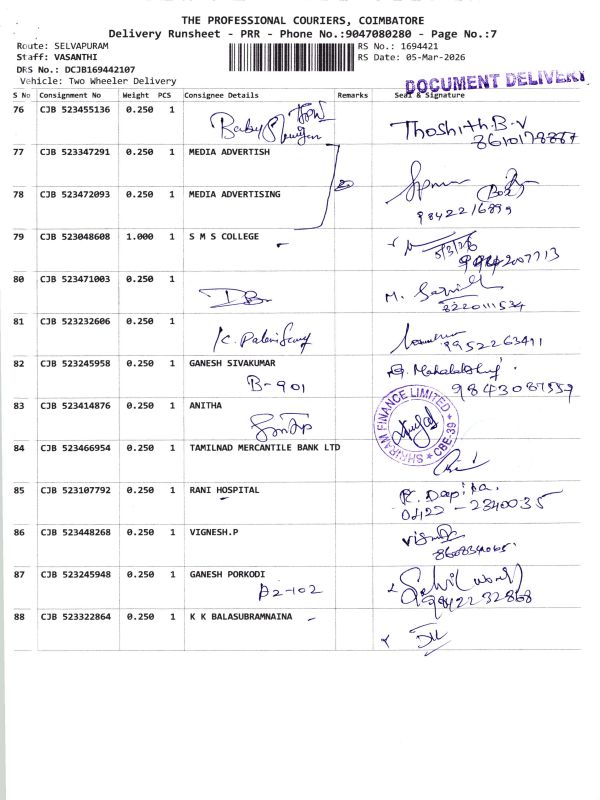 THE PROFESSIONAL COURIERS, COIMBATORE
Delivery Runsheet - PRR - Phone No.:9047080280 - Page No.:7
Route: SELVAPURAM
RS No.: 1694421
Staff: VASANTHI
RS Date: 05-Mar-2026
DRS No.: DCJB169442107
Vehicle: Two Wheeler Delivery
DOCUMENT DELIVERY
S No Consignment No Weight PCS Consignee Details Remarks Seal & Signature
76 CJB 523455136 0.250 1
Baby
Thoshith.B.V
8610178887
77 CJB 523347291 0.250 1 MEDIA ADVERTISH
78 CJB 523472093 0.250 1 MEDIA ADVERTISING
9842216899
79 CJB 523048608 1.000 1 S M S COLLEGE
5/3/26
80 CJB 523471003 0.250 1
M.
8220111534
81 CJB 523232606 0.250 1
K. Palanisamy
9952263411
82 CJB 523245958 0.250 1 GANESH SIVAKUMAR
B-901
G. Mahalakshmi
9843087559
83 CJB 523414876 0.250 1 ANITHA
SHRIRAM FINANCE LIMITED * CBE-39 *
84 CJB 523466954 0.250 1 TAMILNAD MERCANTILE BANK LTD
85 CJB 523107792 0.250 1 RANI HOSPITAL
R. Deepika.
0422-2340035
86 CJB 523448268 0.250 1 VIGNESH.P
87 CJB 523245948 0.250 1 GANESH PORKODI
A2-102
9842232868
88 CJB 523322864 0.250 1 K K BALASUBRAMNAINA